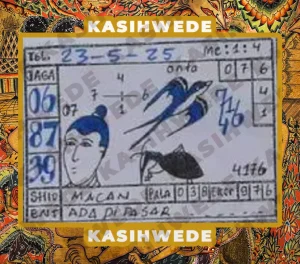 KASIHWEDE
TGL. 23-5-25 Mc: 1:4
JAGA 4 Onta 0 7 6
06 7 1 6 4
07 1
87
39 4176
SHIO MACAN PALA 0 3 8 EKOR 9 7 6
ADA DI PASAR
KASIHWEDE